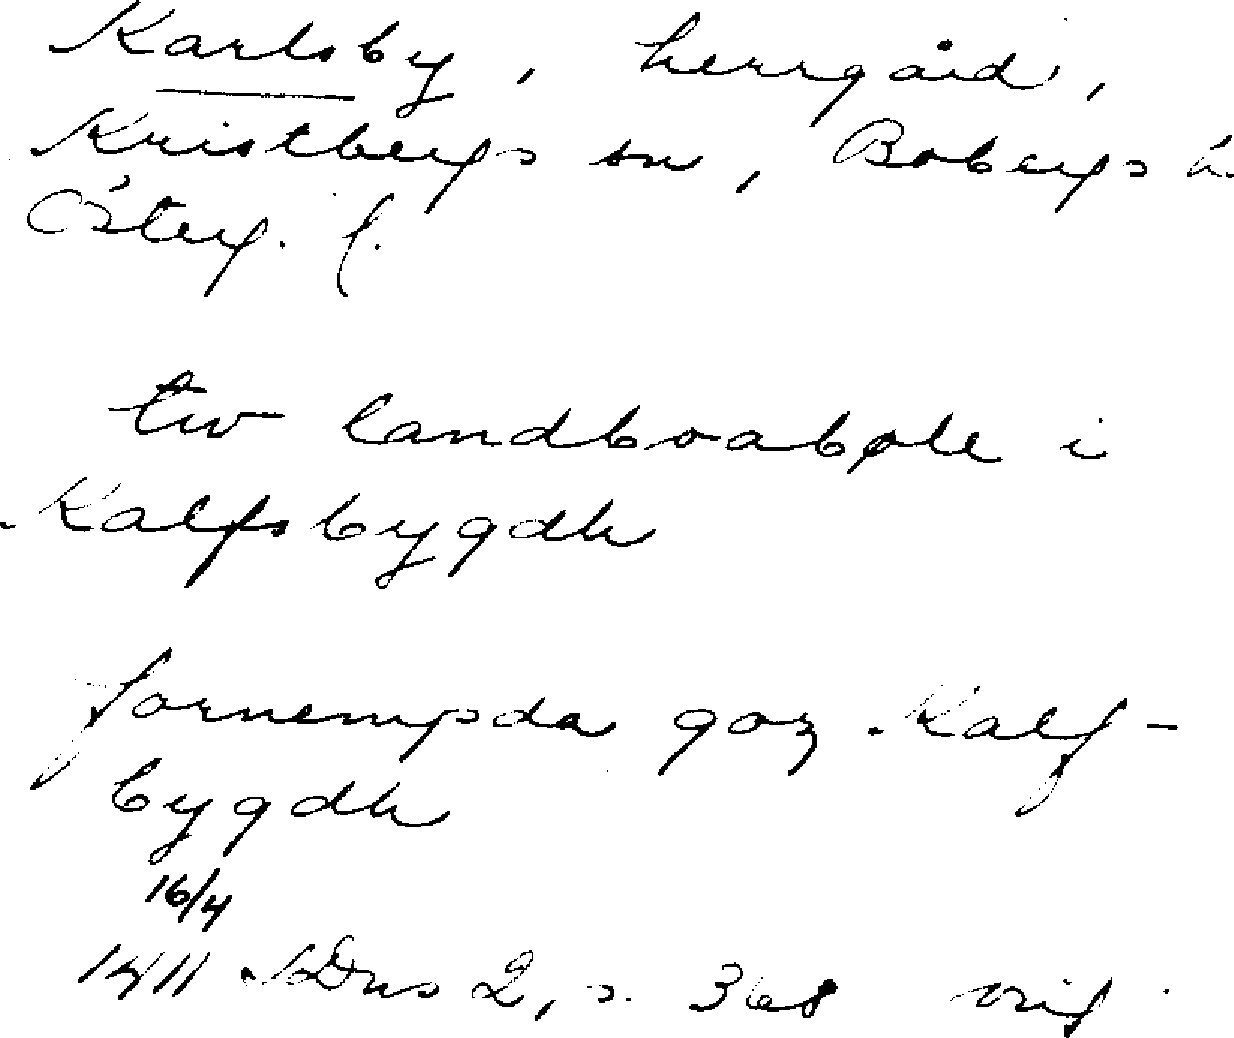 Karlsby, herrgård,
Kristbergs sn, Bobergs h.
Österg. l.
tw landboabøle i
Kalfsbygdh
fornempda goz Kalf-
bygdh
16/4
1411 SDns 2, s. 368 orig.